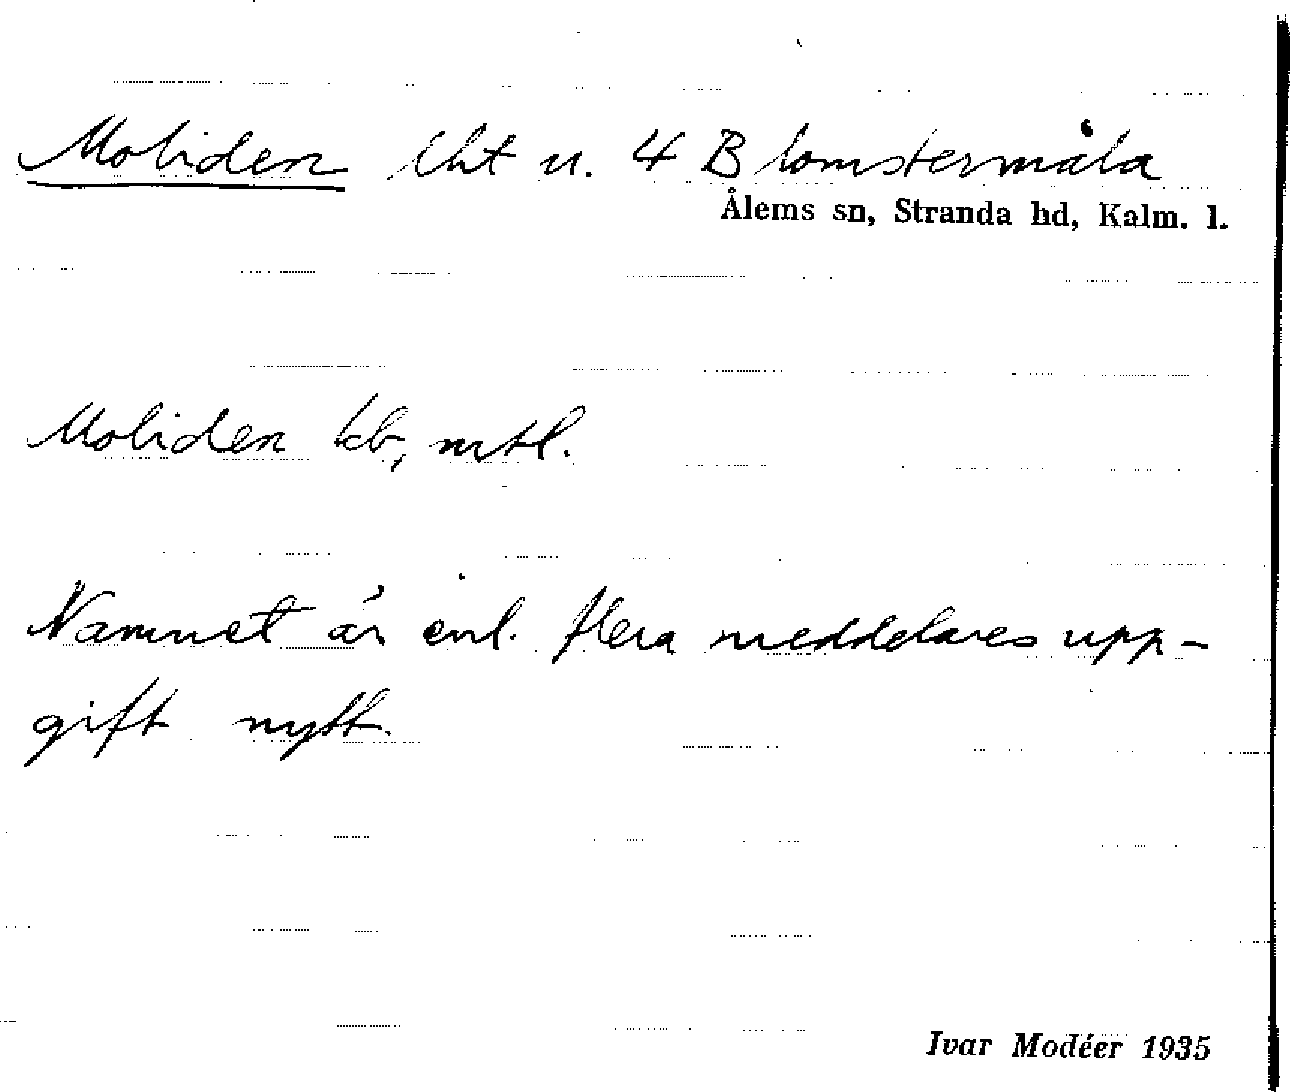 Moliden lht u. 4 Blomstermåla
Ålems sn, Stranda hd, Kalm. l.
Moliden kb, mtl.
Namnet är enl. flera meddelares upp-
gift nytt.
Ivar Modéer 1935